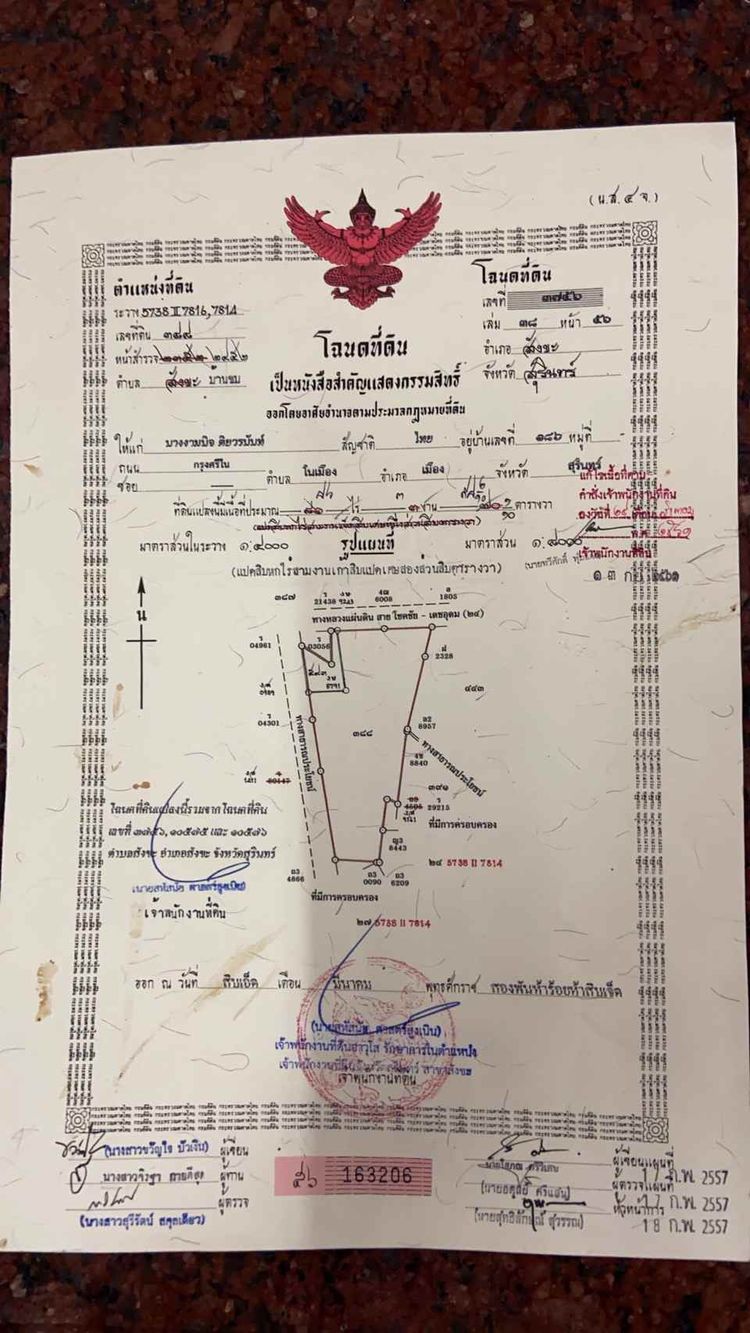 (น.ส.๔ จ.)
ตำแหน่งที่ดิน
ระวาง 5738 II 7816, 7814
เลขที่ดิน ๓๘๘
หน้าสำรวจ ๒๙๕๒
ตำบล สังขะ บ้านชบ
โฉนดที่ดิน
เลขที่ ๓๗๕๖
เล่ม ๓๘ หน้า ๕๖
อำเภอ สังขะ
จังหวัด สุรินทร์
โฉนดที่ดิน
เป็นหนังสือสำคัญแสดงกรรมสิทธิ์
ออกโดยอาศัยอำนาจตามประมวลกฎหมายที่ดิน
ให้แก่ นางงามนิจ ติยวรนันท์ สัญชาติ ไทย อยู่บ้านเลขที่ ๑๘๖ หมู่ที่
ถนน กรุงศรีใน ตำบล ในเมือง อำเภอ เมือง จังหวัด สุรินทร์
ซอย —
ที่ดินแปลงนี้มีเนื้อที่ประมาณ ๘๖ ไร่ ๓ งาน ตารางวา
แก้ไขเนื้อที่ตาม
คำสั่งเจ้าพนักงานที่ดิน
ลงวันที่
เจ้าพนักงานที่ดิน
มาตราส่วนในระวาง ๑:๔๐๐๐ รูปแผนที่ มาตราส่วน
(แปดสิบหกไร่สามงานเก้าสิบแปดเศษสองส่วนสิบตารางวา)
น
๓๘๗
21438
6008
1805
ทางหลวงแผ่นดิน สาย โชคชัย - เดชอุดม (๒๔)
04961
03056
2328
๕๙๓
๔๔๓
04301
๓๘๘
8957
8840
ทางสาธารณประโยชน์
ทางสาธารณประโยชน์
๓๙๑
29215
ที่มีการครอบครอง
8443
๒๔ 5738 II 7814
4866
0090
6209
ที่มีการครอบครอง
๒๗ 5738 II 7814
โฉนดที่ดินแปลงนี้รวมจากโฉนดที่ดิน
เลขที่ ๓๗๕๖, ๑๐๕๗๕ และ ๑๐๕๗๖
ตำบลสังขะ อำเภอสังขะ จังหวัดสุรินทร์
เจ้าพนักงานที่ดิน
ออก ณ วันที่ สิบเอ็ด เดือน มีนาคม พุทธศักราช สองพันห้าร้อยห้าสิบเจ็ด
เจ้าพนักงานที่ดินอาวุโส รักษาการในตำแหน่ง
เจ้าพนักงานที่ดิน
(นางสาวขวัญใจ บัวเงิน) ผู้เขียน
ผู้ทาน
ผู้ตรวจ
(นางสาวสุวีรัตน์ สกุลเดียว)
๔๖ 163206
ผู้เขียนแผนที่
ผู้ตรวจแผนที่ 17 ก.พ. 2557
หัวหน้าการ 17 ก.พ. 2557
(นายสุทธิลักษณ์ สุวรรณ) 18 ก.พ. 2557